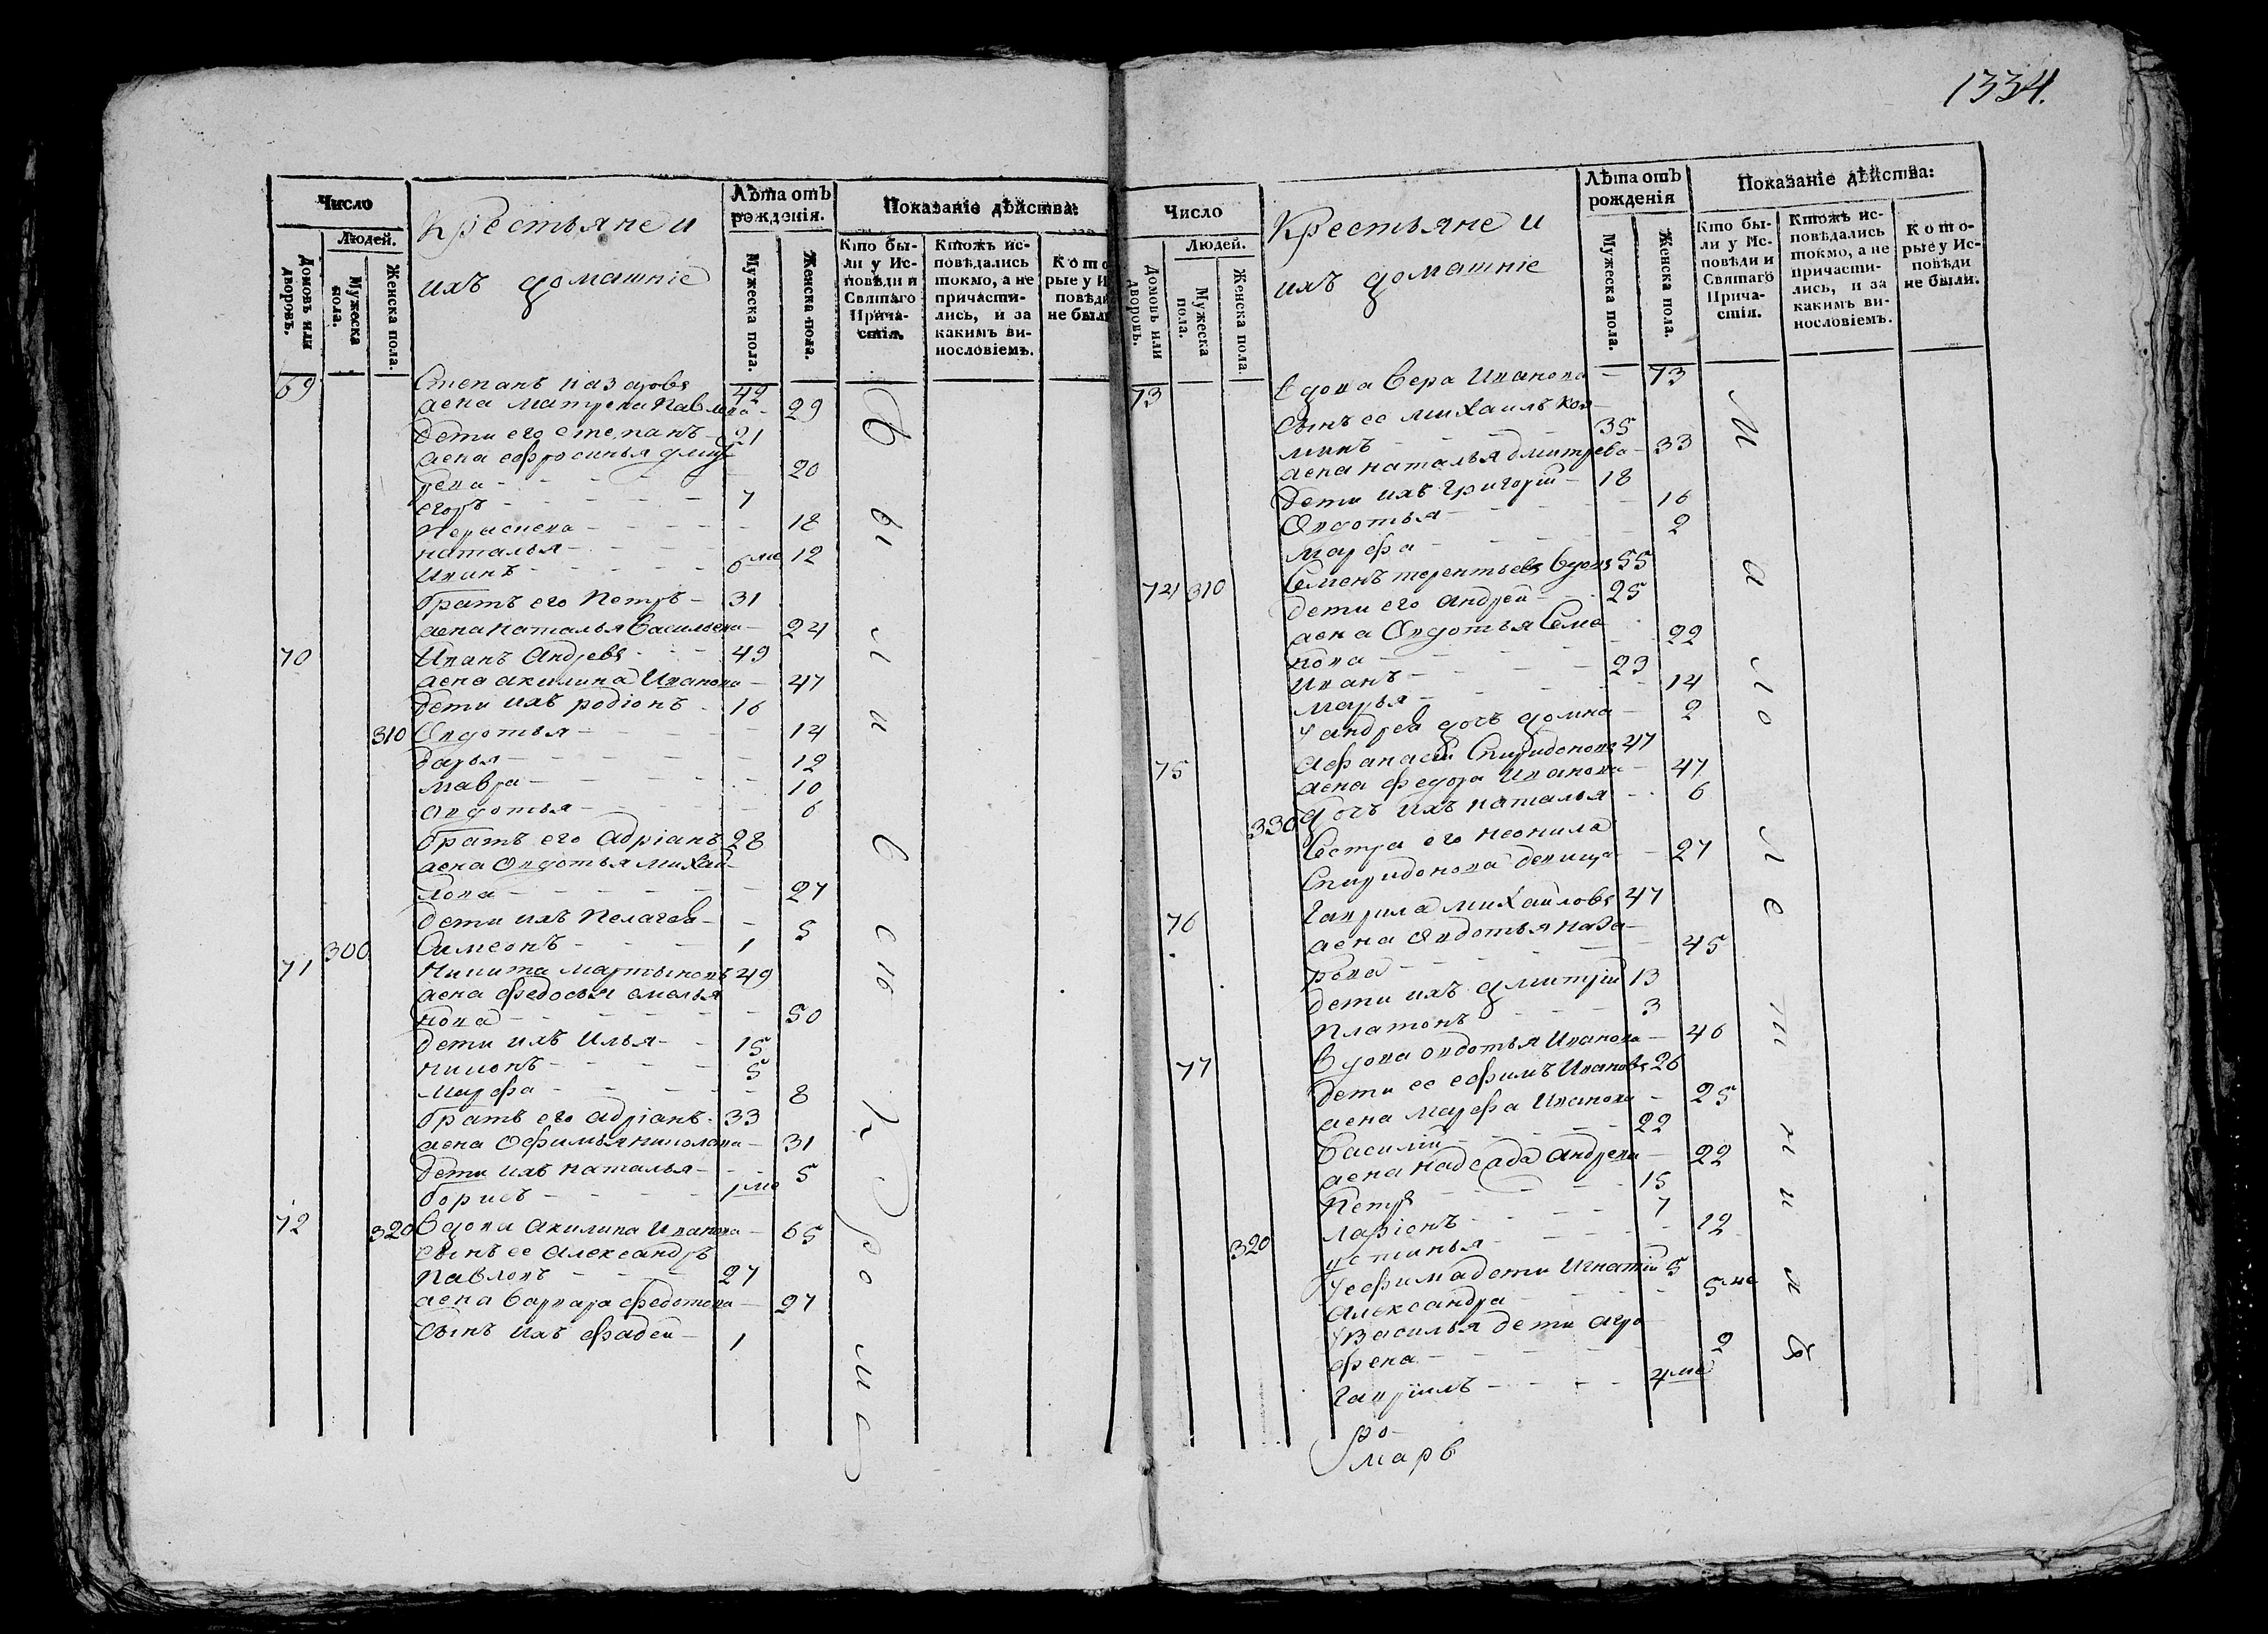 1334.
Число
Людей.
Домовъ или дворовъ.
Мужеска пола.
Женска пола.
Крестьяне и
ихъ домашніе
Лѣта отъ
рожденія.
Мужеска пола.
Женска пола.
Показаніе дѣйства:
Кто бы-
ли у Ис-
повѣди и
Святаго
Прича-
стія.
Ктожъ ис-
повѣдались
токмо, а не
причасти-
лись, и за
какимъ ви-
нословіемъ.
Кото
рые у И
повѣд
не был
69 Степанъ Назаровъ 42
жена Матрена Павлова - 29
дети его Степанъ - 21
жена Ефросинья Дмит
рева - 20
Егоръ - 7
Пераскева - 18
Наталья - 12
Иванъ - 6 ме
братъ его Петръ - 31
жена Наталья Васильева - 24
70 Иванъ Андревъ - 49
жена Акилина Иванова - 47
дети ихъ Родіонъ - 16
310 Овдотья - 14
Дарья - 12
Мавра - 10
Овдотья - 6
братъ его Адріанъ 28
жена Овдотья Михай-
лова - 27
дети ихъ Пелагея - 5
300 Симеонъ - 1
71 Никита Мартыновъ 49
жена Федосья Емелья
нова - 50
дети ихъ Илья - 15
Никонъ - 5
Марфа - 8
братъ его Адріанъ - 33
жена Офимья Николаева - 31
дети ихъ Наталья - 5
Борисъ - 1 ме
72 320 Вдова Акилина Иванова - 65
сынъ ее Александръ
Павловъ - 27
жена Варвара Федотова - 27
сынъ ихъ Фадей - 1
Число
Людей.
Домовъ или дворовъ.
Мужеска пола.
Женска пола.
Крестьяне и
ихъ домашніе
Лѣта отъ
рожденія
Мужеска пола.
Женска пола.
Показаніе дѣйства:
Кто бы-
ли у Ис-
повѣди и
Святаго
Прича-
стія.
Ктожъ ис-
повѣдались
токмо, а не
причасти-
лись, и за
какимъ ви-
нословіемъ.
Кото-
рые у Ис-
повѣди
не были.
73 Вдова Вера Иванова - 73
сынъ ее Михаилъ
35
жена Наталья Дмитрева - 33
дети ихъ Григорій - 18
Овдотья - 16
Марфа - 2
74 310 Семенъ Терентьевъ вдовъ 55
дети его Андрей - 25
жена Овдотья Семе
нова - 22
Иванъ - 23
Марья - 14
у Андрея дочь Домна - 2
75 Афанасій Спиридоновъ 47
жена Федора Иванова - 47
330 дочь ихъ Наталья - 6
сестра его Неонила
Спиридонова девица - 27
76 Гаврила Михайловъ 47
жена Овдотья Наза-
рова - 45
дети ихъ Дмитрій 13
Платонъ - 3
77 вдова Овдотья Иванова - 46
дети ее Ефимъ Ивановъ 26
жена Марфа Иванова - 25
Василій - 22
жена Надежда Андрева - 22
Петръ - 15
Ларіонъ - 7
320 Устинья - 12
у Ефима дети Игнатій 5
Александра - 5 ме
у Василья дети Агро
фена - 2
Гавріилъ - 4 ме